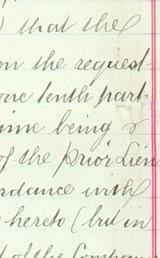 ) that the
on the request
one tenth part
time being &
of the Prior Lien
rdance with
hereto (but in
of the Company